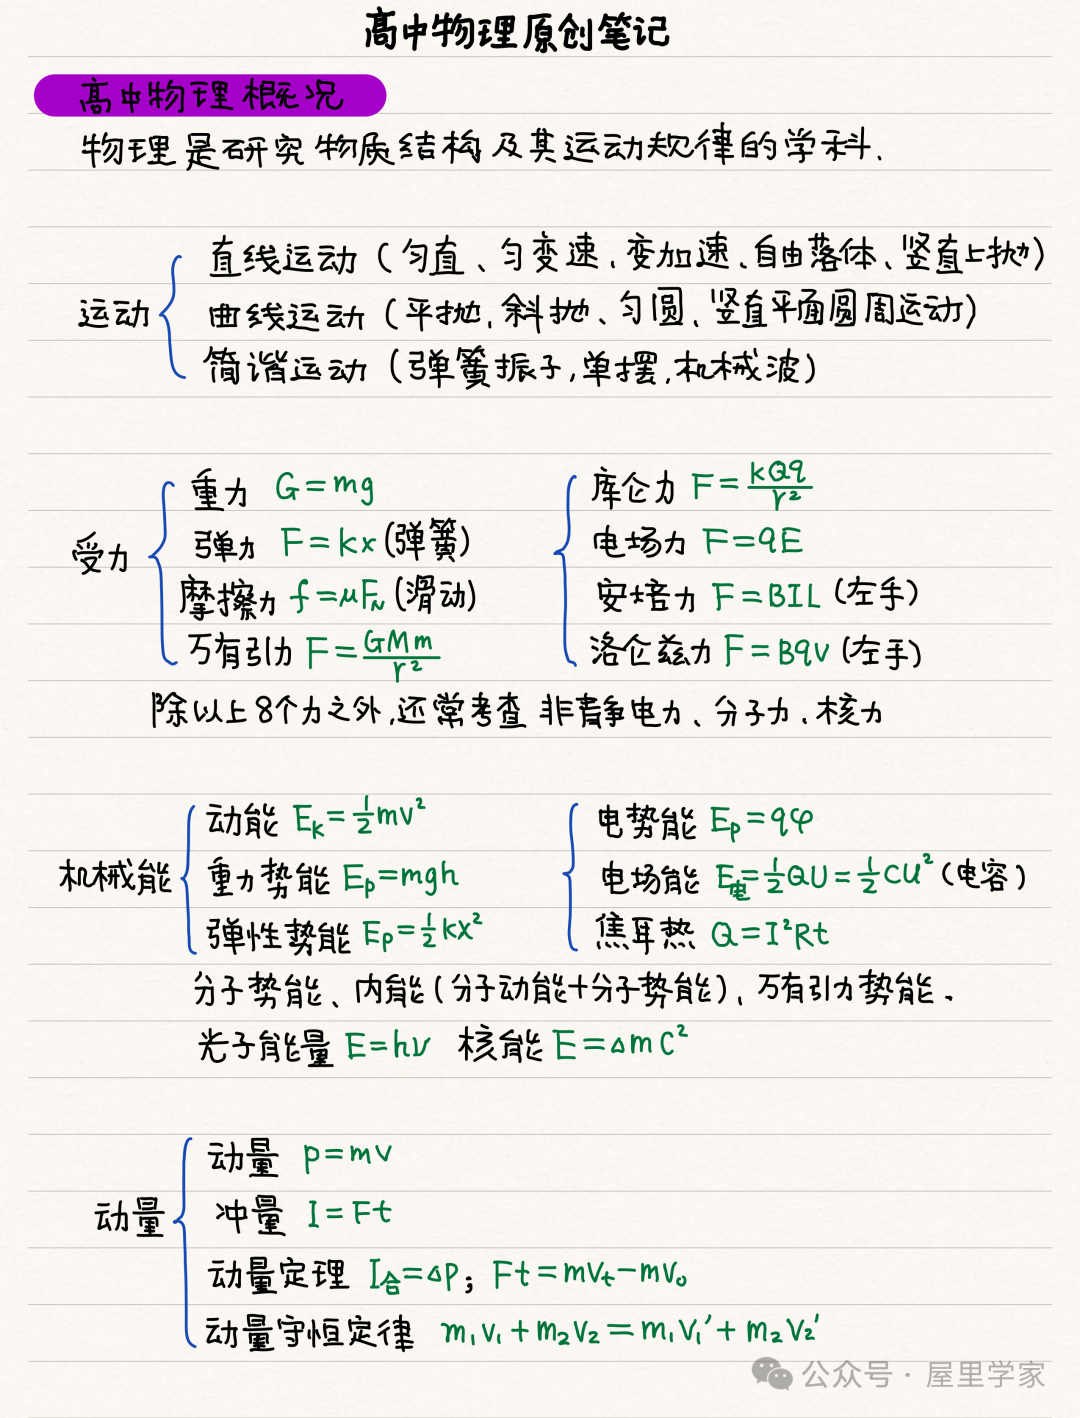 高中物理原创笔记
高中物理概况
物理是研究物质结构及其运动规律的学科.
直线运动(匀直、匀变速、变加速、自由落体、竖直上抛)
运动
曲线运动(平抛、斜抛、匀圆、竖直平面圆周运动)
简谐运动(弹簧振子,单摆,机械波)
重力 G=mg
库仑力 F=kQq/r²
受力
弹力 F=kx(弹簧)
电场力 F=qE
摩擦力 f=μF_N(滑动)
安培力 F=BIL(左手)
万有引力 F=GMm/r²
洛仑兹力 F=Bqv(左手)
除以上8个力之外,还常考查 非静电力、分子力、核力
动能 E_k=½mv²
电势能 E_p=qφ
机械能
重力势能 E_p=mgh
电场能 E_电=½QU=½CU²(电容)
弹性势能 E_p=½kx²
焦耳热 Q=I²Rt
分子势能、内能(分子动能+分子势能)、万有引力势能.
光子能量 E=hν 核能 E=△mC²
动量 p=mv
动量
冲量 I=Ft
动量定理 I合=△p; Ft=mv_t-mv₀
动量守恒定律 m₁v₁+m₂v₂=m₁v₁'+m₂v₂'
公众号·屋里学家